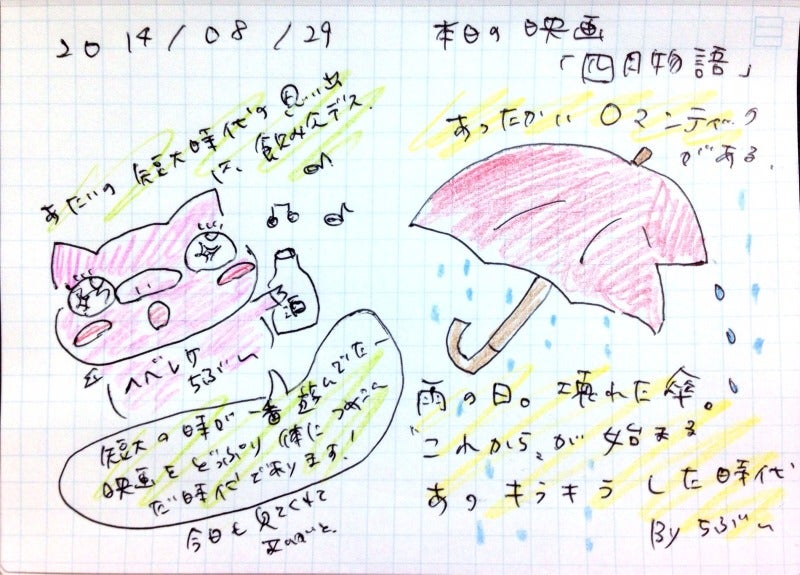 2014/08/29
本日の映画
「四月物語」
あたいの短大時代の思い出
は、飲み会デス
あったかいロマンティック
がある。
酒
ヘベレケ
ちぶー
短大の時が一番遊んでたー
映画をどっぷり体につめこん
だ時代であります!
今日も見てくれて
雨の日。壊れた傘。
"これから"が始まる
あのキラキラした時代
By ちぶー